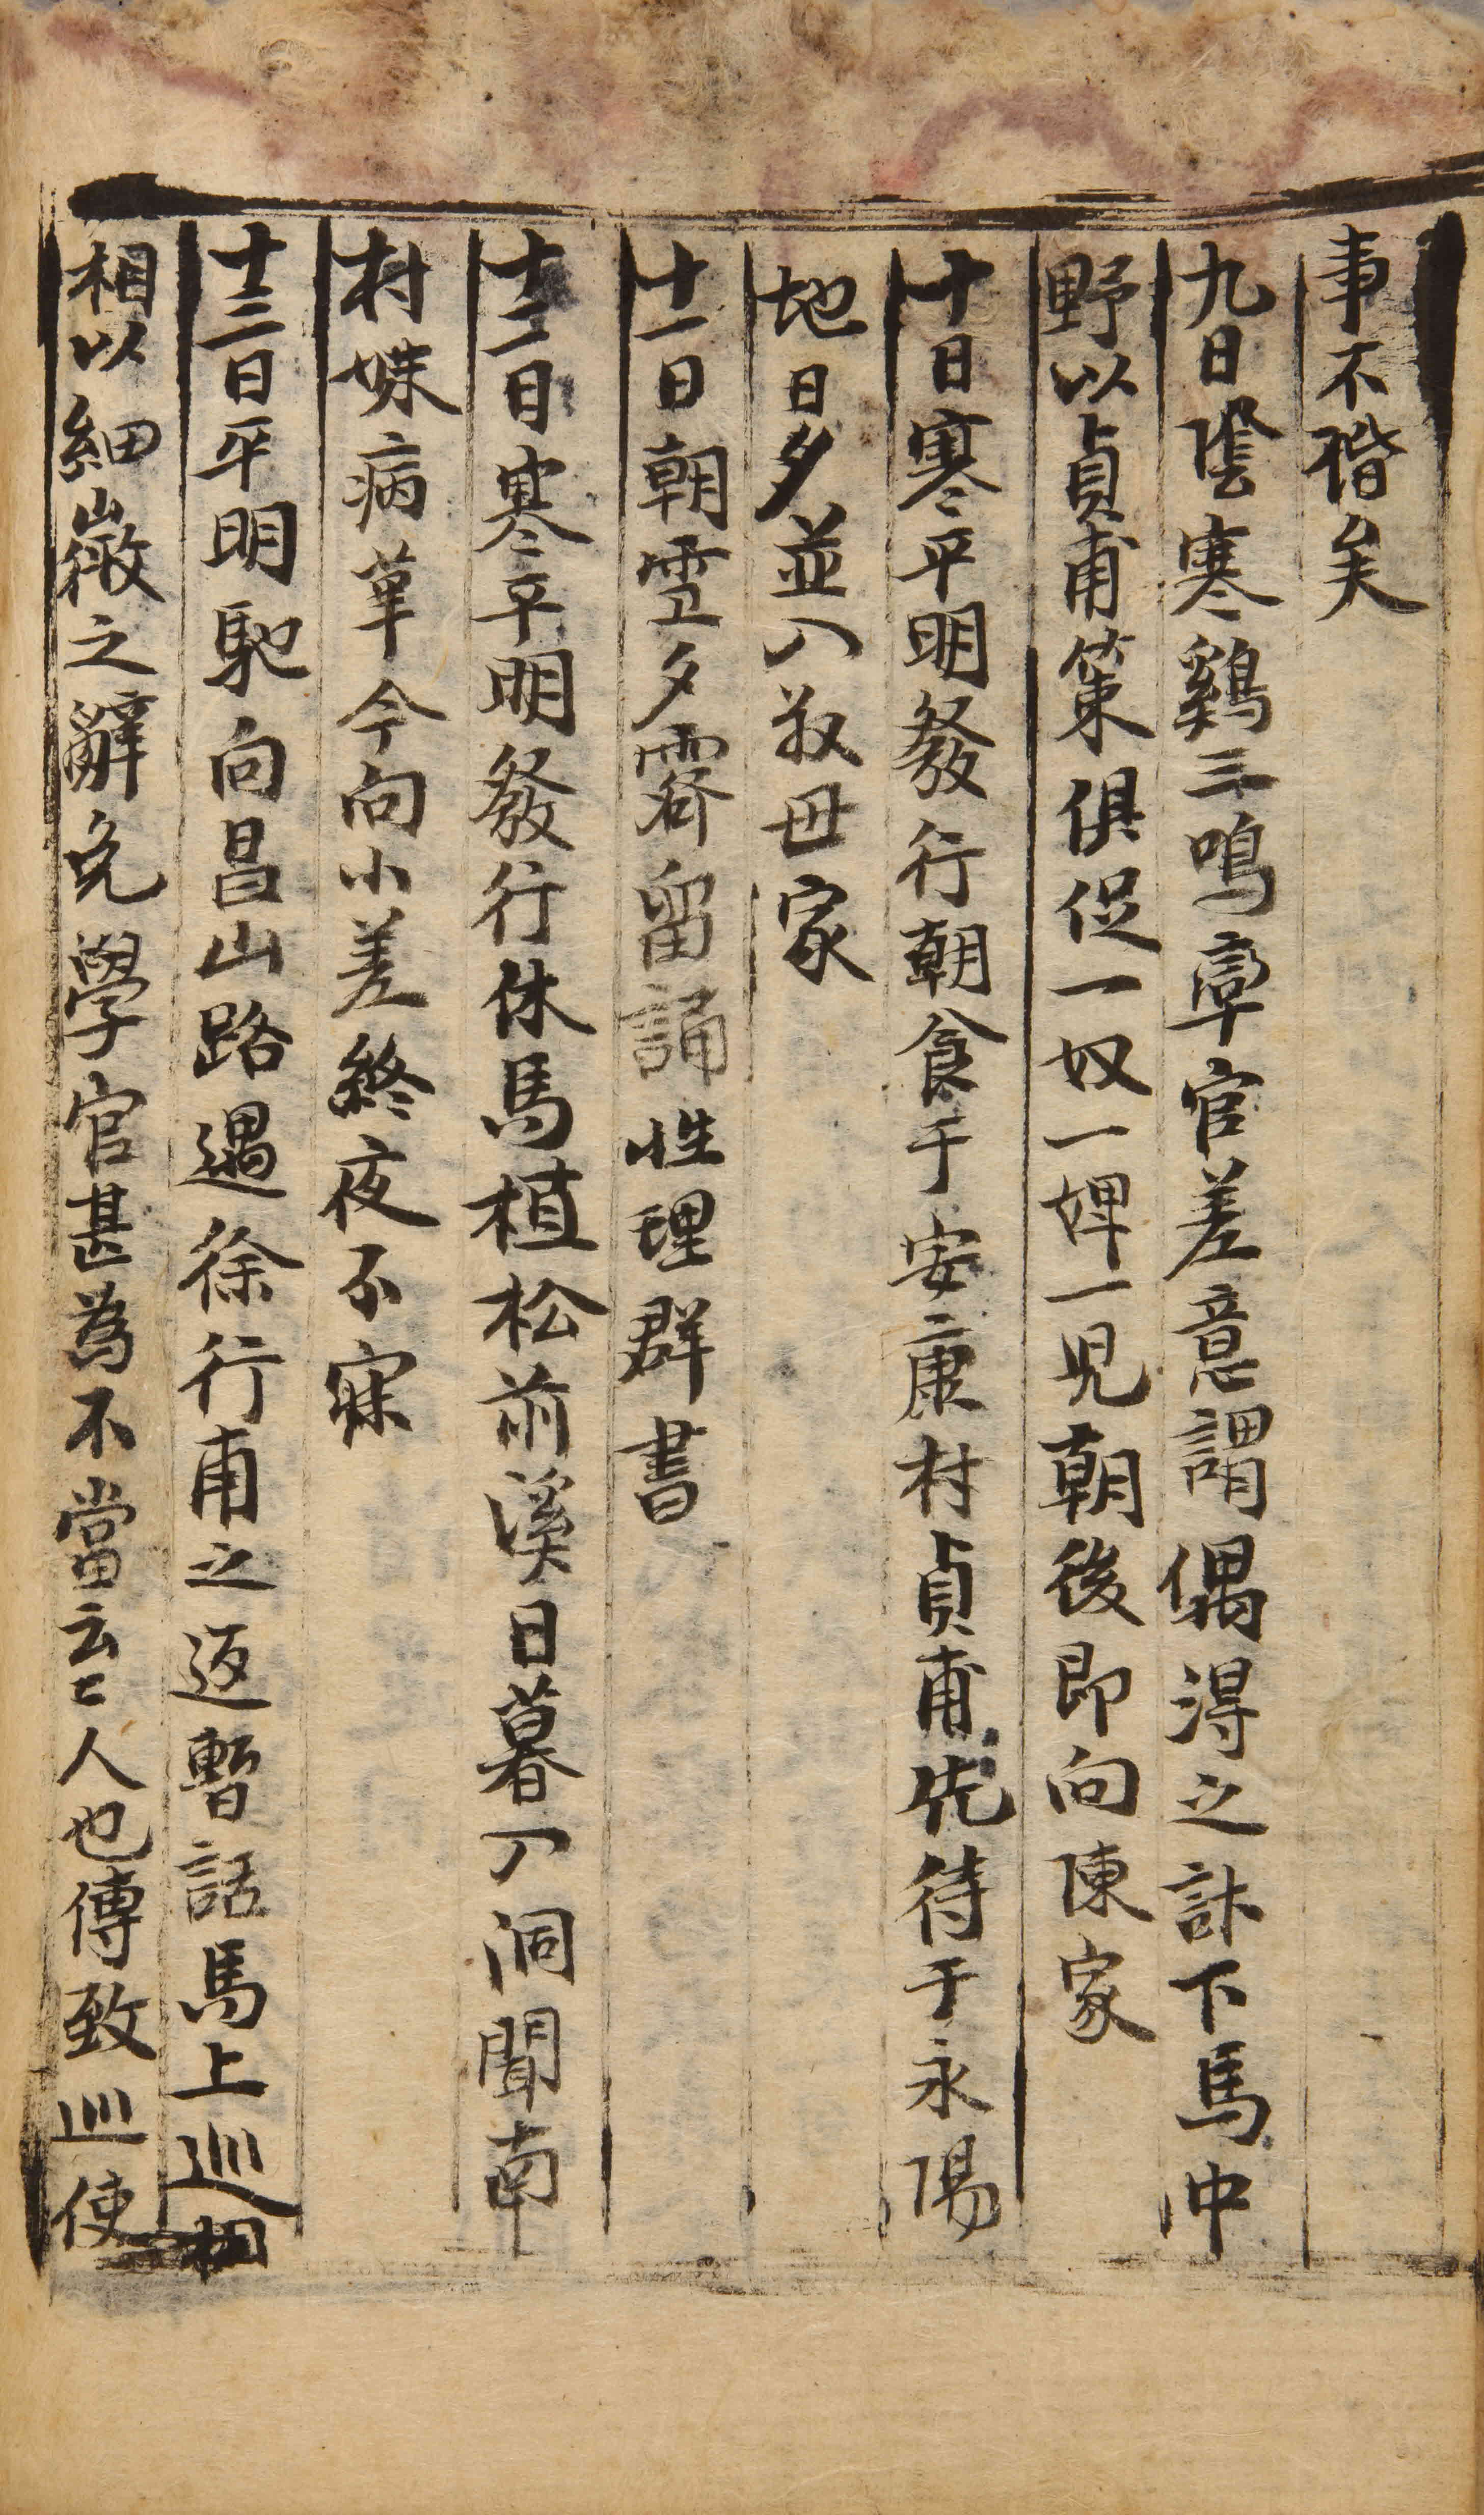 事不諧矣
九日陰寒鷄三鳴率官差意謂偶得之計下馬中
野以貞甫策俱促一奴一婢一児朝後即向陳家
十日寒平明發行朝食于安康村貞甫先待于永陽
地日夕並入叔母家
十一日朝雪夕霽留誦性理群書
十二日寒平明發行休馬植松前溪日暮入洞聞南
村妹病革今向小差終夜不寐
十三日平明馳向昌山路遇徐行甫之返暫話馬上巡相
相以細微之辭免學官甚爲不當云〻人也傳致巡使